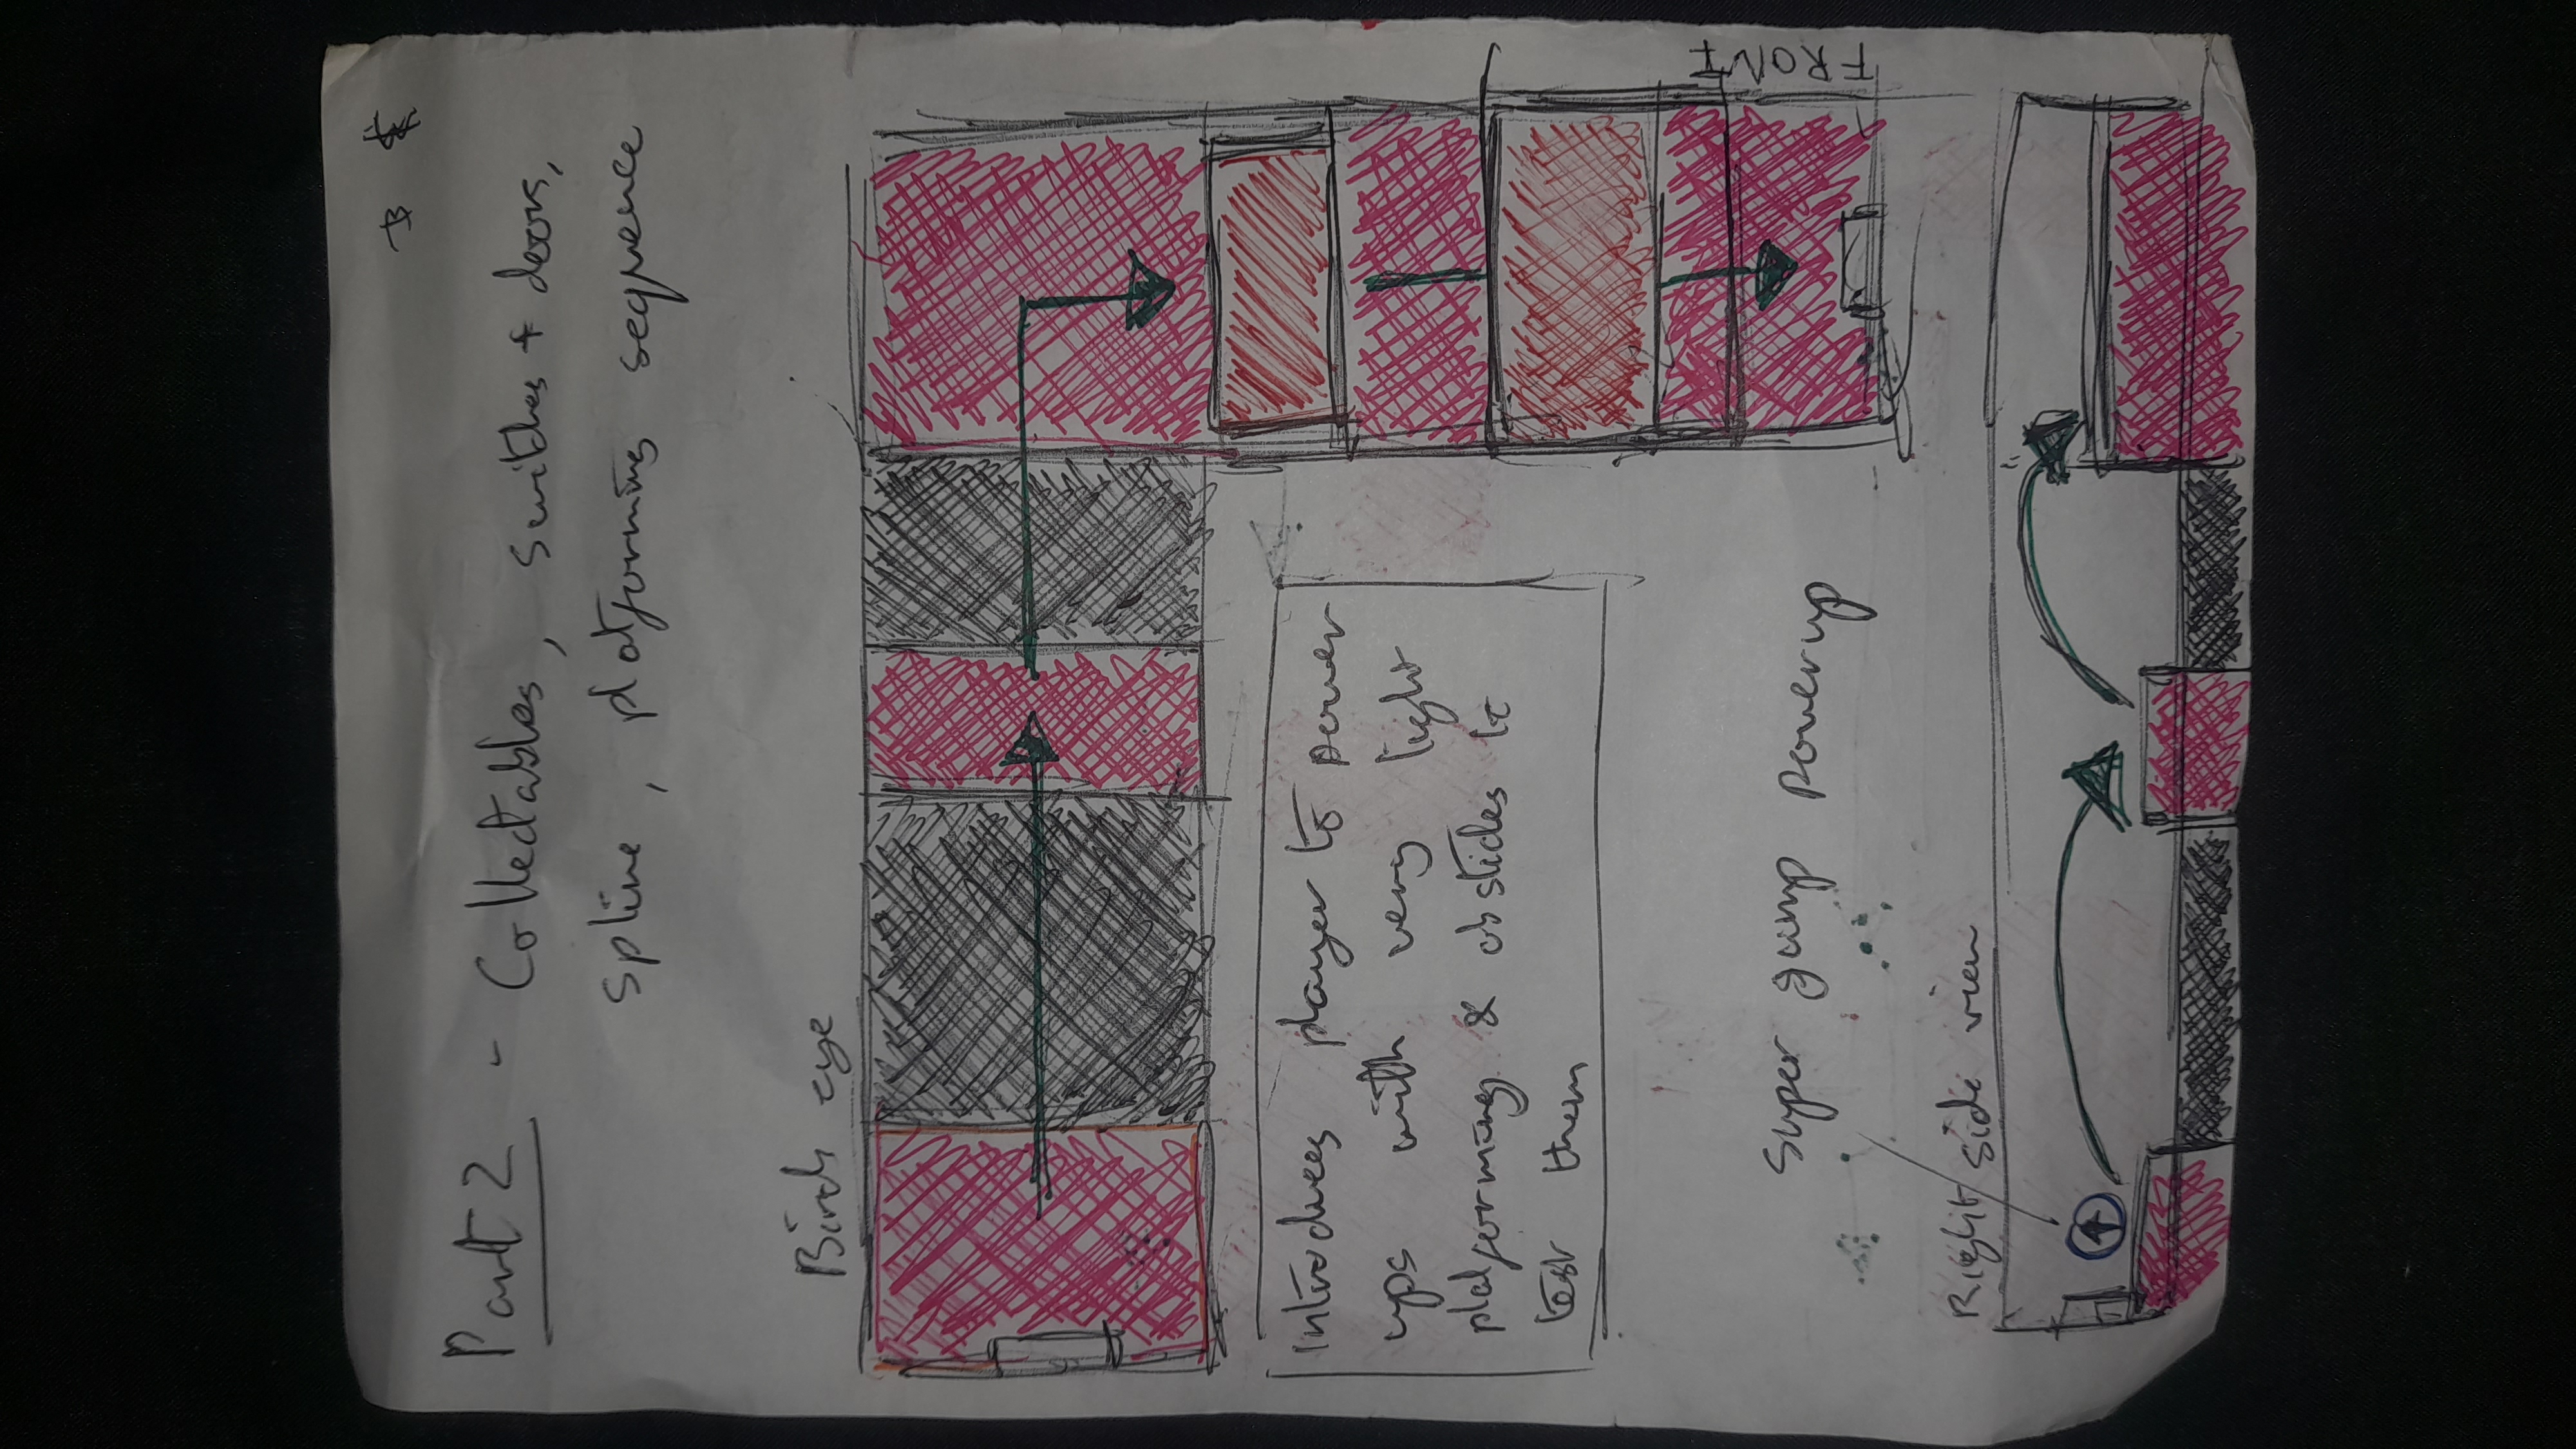 Part 2 - Collectables, switches + doors,
spline, platforming sequence
Birds eye
Introduces player to power
ups with very light
platforming & obsticles to
test them
Super jump powerup
FRONT
Right side view